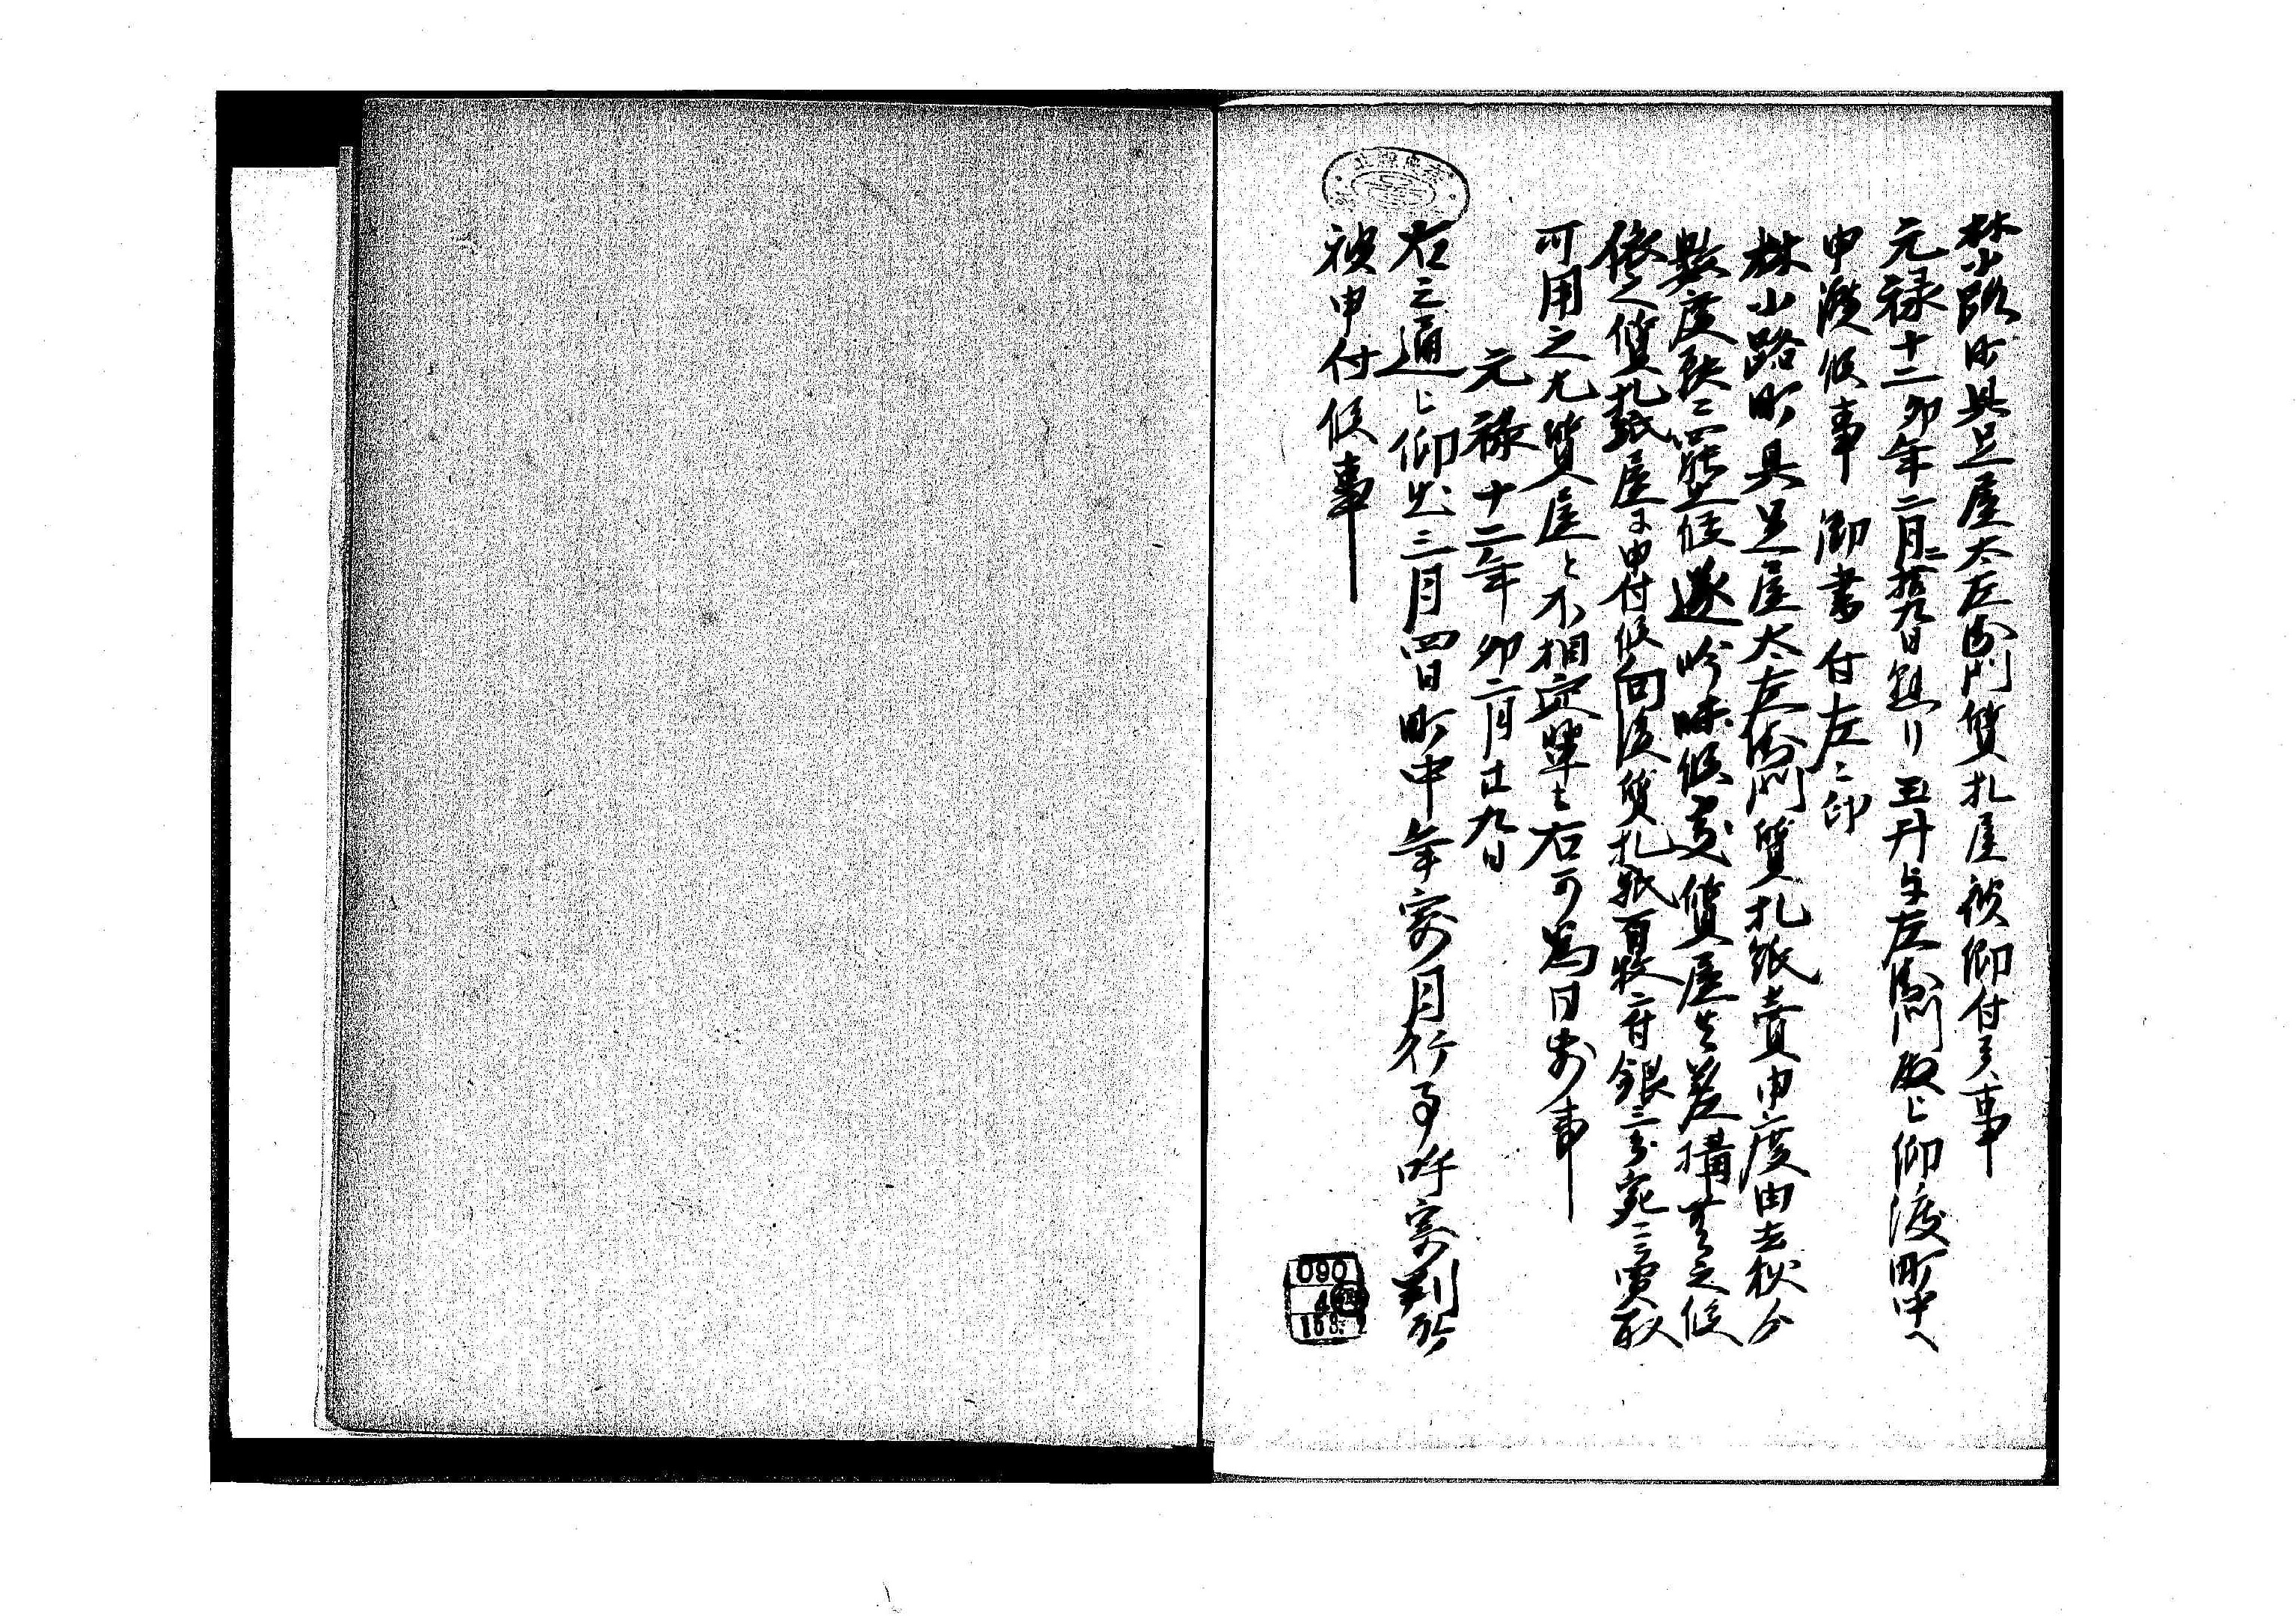 林小路町具足屋太左衛門質札屋被仰付候事
元禄十二卯年二月二拾九日 玉井与左衛門殿ゟ仰渡町中へ
申渡候事 御書付左ニ印
林小路町具足屋太左衛門質札紙売申度由去秋ゟ
数度訴ニ罷出候遂吟味候處質屋共差構無之候
依之質札紙屋ニ申付候向後質札紙百枚ニ付銀三分宛ニ買取
可用之尤質屋と不相定輩も右可為同前事
元禄十二年卯二月廿九日
右之通ニ仰出三月四日町中年寄月行事呼寄判形
被申付候事
090
4
158